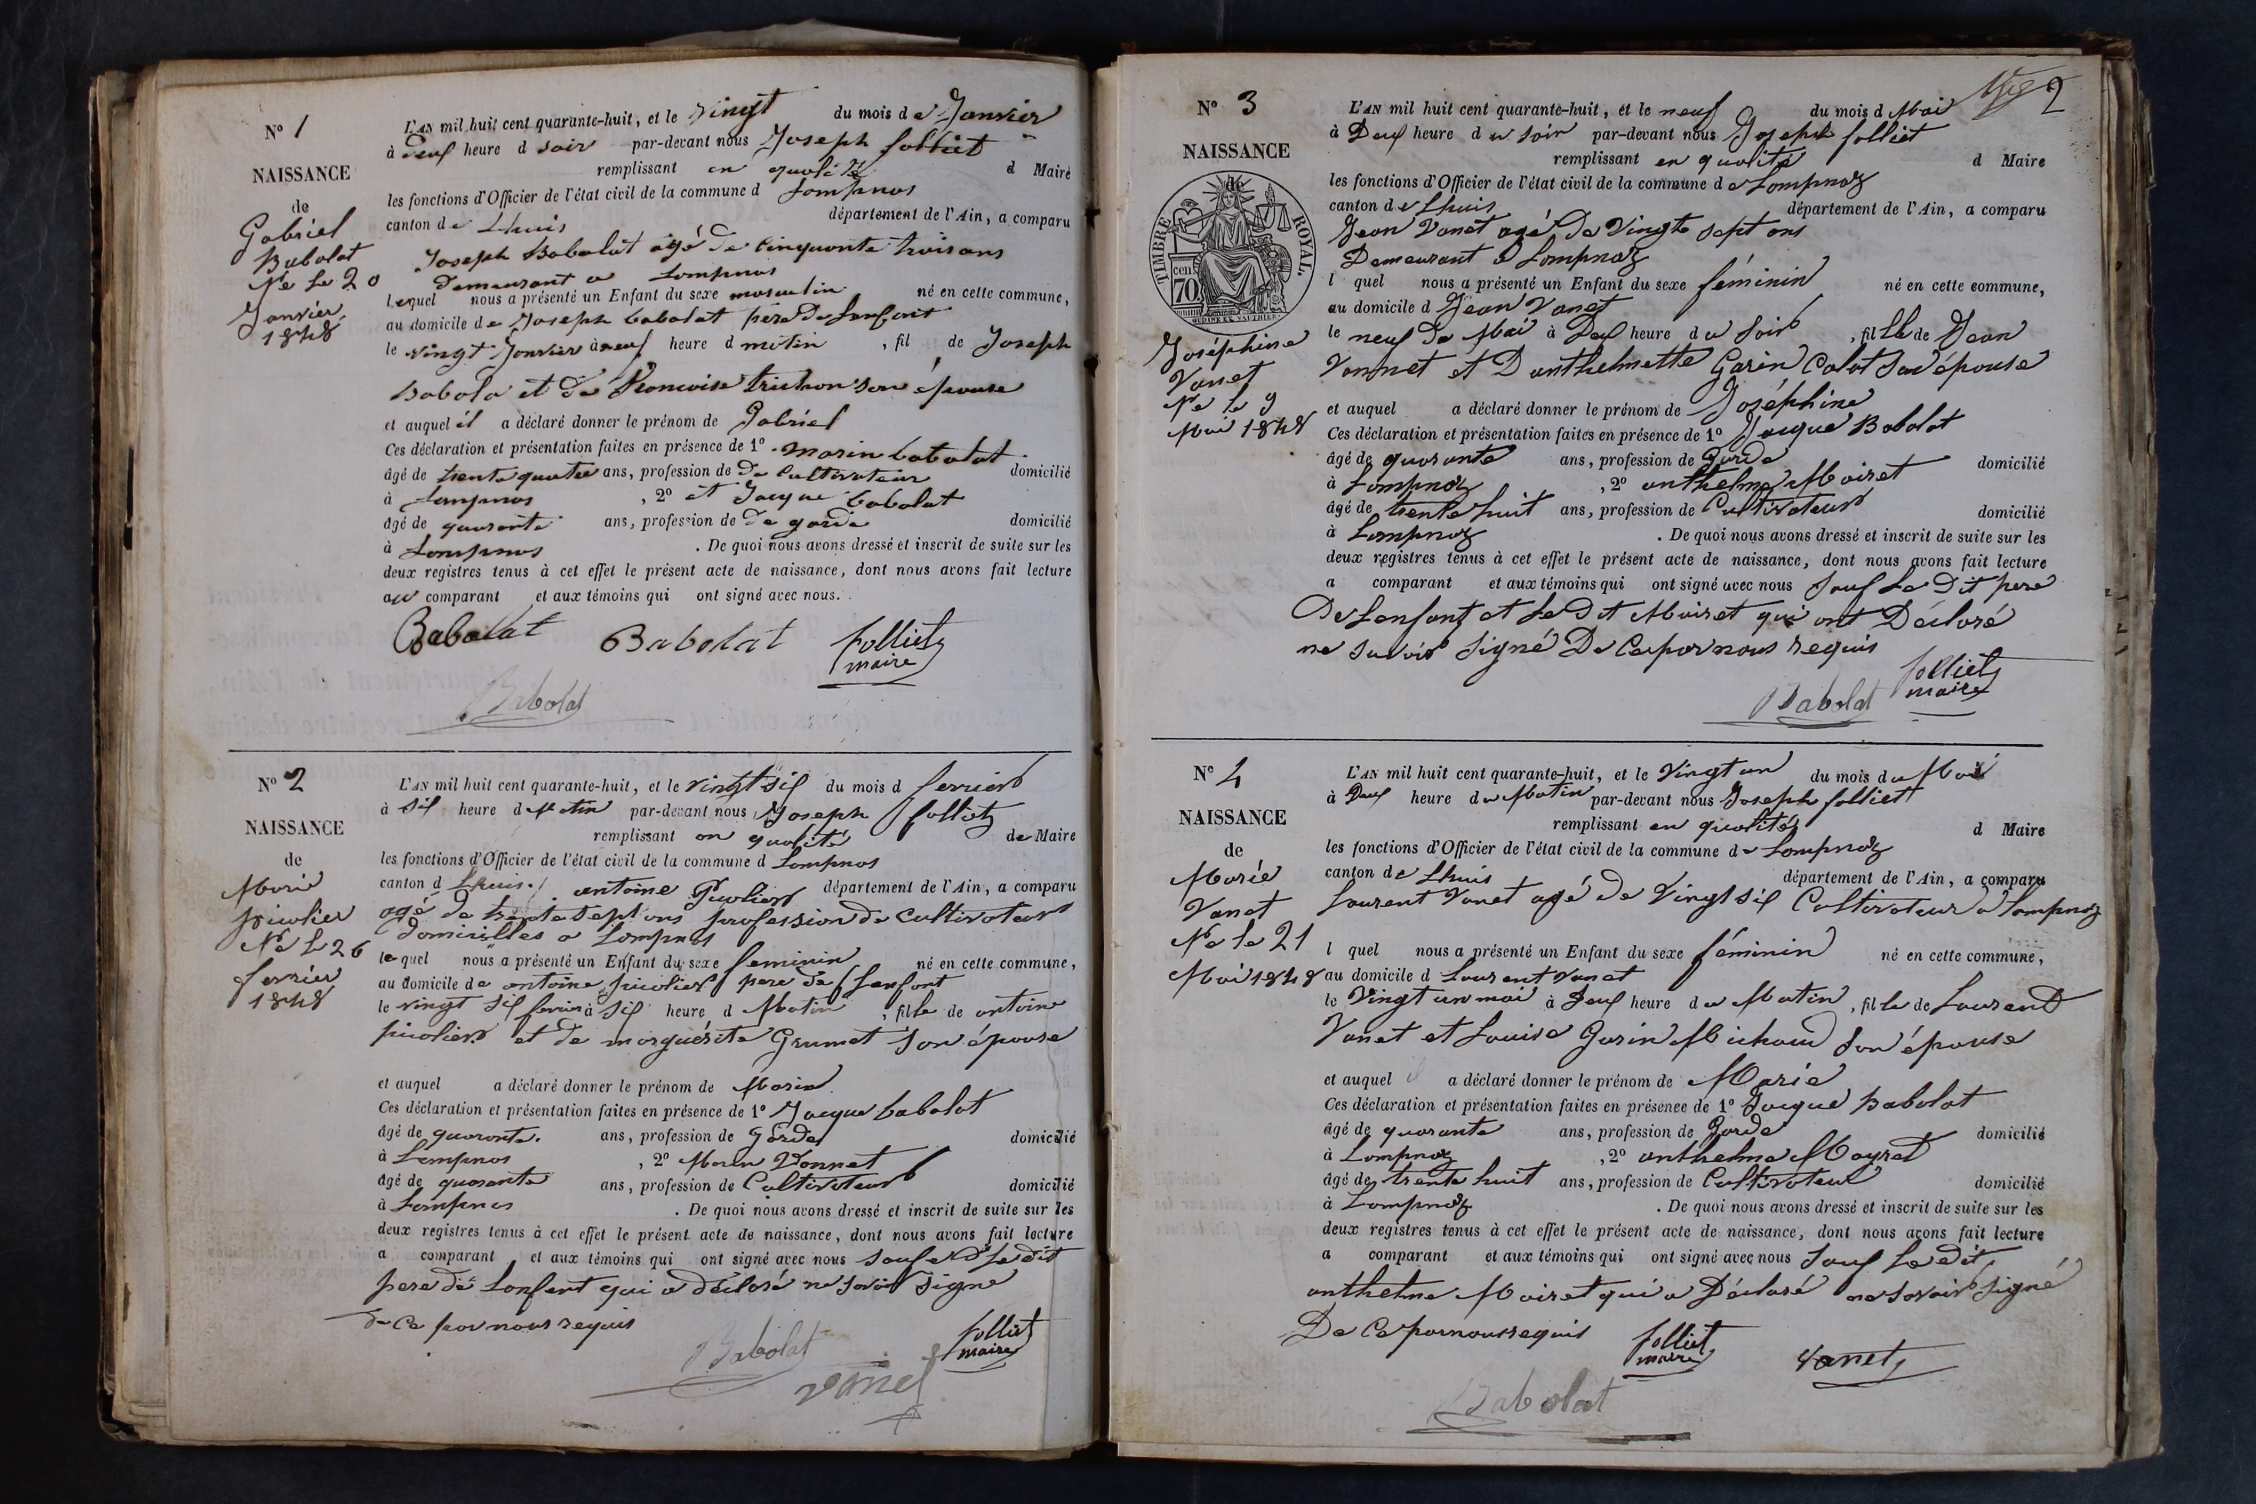 N° 1
NAISSANCE
de
Gabriel
Babolat
Né Le 20
Janvier
1848
L'AN mil huit cent quarante-huit, et le vingt du mois de Janvier
à deuf heure d soir par-devant nous Joseph folliet
remplissant en qualité d Maire
les fonctions d'Officier de l'état civil de la commune d Lompnas
canton de Lhuis département de l'Ain, a comparu
Joseph Babolat agé de cinquante trois ans
demeurant a Lompnas
lequel nous a présenté un Enfant du sexe masculin né en cette commune,
au domicile de Joseph babolat pere de Lenfant
le vingt Janvier à neuf heure d matin, fil de Joseph
Babola et de francoise trichon son épouse
et auquel il a déclaré donner le prénom de Gabriel
Ces déclaration et présentation faites en présence de 1° marin babolat
âgé de trente quatre ans, profession de de Cultivateur domicilié
à Lompnas, 2° et Jacque babolat
âgé de quarante ans, profession de de garde domicilié
à Lompnas. De quoi nous avons dressé et inscrit de suite sur les
deux registres tenus à cet effet le présent acte de naissance, dont nous avons fait lecture
au comparant et aux témoins qui ont signé avec nous.
Babolat Babolat folliet
maire
Babolat
N° 2
NAISSANCE
de
Marie
picolier
Né L 26
fevrier
1848
L'AN mil huit cent quarante-huit, et le vingt sif du mois d fevrier
à sif heure d Matin par-devant nous Joseph folliet
remplissant en qualité de Maire
les fonctions d'Officier de l'état civil de la commune d Lompnas
canton d Lhuis antoine Picolier département de l'Ain, a comparu
agé de trente sept ans profession de cultivateur
domicilles a Lompnas
lequel nous a présenté un Enfant du sexe feminin né en cette commune,
au domicile de antoine picolier pere de Lenfant
le vingt sif fevrier à sif heure d Matin, fille de antoine
picolier et de marguérite Grumet son épouse
et auquel a déclaré donner le prénom de Marie
Ces déclaration et présentation faites en présence de 1° Jacque babolat
âgé de quarante ans, profession de Garde domicilié
à Lompnas, 2° Marin Vonnet
âgé de quarante ans, profession de Cultivateur domicilié
à Lompnas. De quoi nous avons dressé et inscrit de suite sur les
deux registres tenus à cet effet le présent acte de naissance, dont nous avons fait lecture
a comparant et aux témoins qui ont signé avec nous sauf Le dit
pere de Lenfant qui a déclaré ne savoir signe
de Ce par nous requis
Babolat folliet
maire
vanet
2
N° 3
NAISSANCE
de
TIMBRE ROYAL.
cen
70
Joséphine
Vanet
Né le 9
Mai 1848
L'AN mil huit cent quarante-huit, et le neuf du mois d Mai
à Deuf heure du soir par-devant nous Joseph folliet
remplissant en qualité d Maire
les fonctions d'Officier de l'état civil de la commune de Lompnaz
canton de Lhuis département de l'Ain, a comparu
Jean Vanet agé De Vingte sept ans
Demeurant a Lompnaz
l quel nous a présenté un Enfant du sexe féminin né en cette commune,
au domicile d Jean Vanet
le neuf de Mai à Deuf heure du Soir, fille de Jean
Vannet et D anthelmette Garin Calat Son épouse
et auquel a déclaré donner le prénom de Joséphine
Ces déclaration et présentation faites en présence de 1° Jacque Babolat
âgé de quarante ans, profession de Garde domicilié
à Lompnaz, 2° anthelme Moiret
âgé de trente huit ans, profession de Cultivateur domicilié
à Lompnaz. De quoi nous avons dressé et inscrit de suite sur les
deux registres tenus à cet effet le présent acte de naissance, dont nous avons fait lecture
a comparant et aux témoins qui ont signé avec nous Sauf Le Dit pere
De Lenfant et Le Dit Moiret qui ont Déclaré
ne Savoir Signé De Ce par nous requis
Babolat folliet
maire
N° 4
NAISSANCE
de
Marie
Vanet
Né le 21
Mai 1848
L'AN mil huit cent quarante-huit, et le Vingt un du mois du Mai
à Deuf heure du Matin par-devant nous Joseph folliet
remplissant en qualité d Maire
les fonctions d'Officier de l'état civil de la commune de Lompnaz
canton de Lhuis département de l'Ain, a comparu
Laurent Vanet agé de Vingt sif Cultivateur a Lompnaz
l quel nous a présenté un Enfant du sexe féminin né en cette commune,
au domicile d Laurent Vanet
le Vingt un mai à Deuf heure du Matin, fille de Laurend
Vanet et Louise Garin Michaud Son épouse
et auquel il a déclaré donner le prénom de Marie
Ces déclaration et présentation faites en présence de 1° Jacque Babolat
âgé de quarante ans, profession de Garde domicilié
à Lompnaz, 2° anthelme Mayret
âgé de trente huit ans, profession de Cultivateur domicilié
à Lompnaz. De quoi nous avons dressé et inscrit de suite sur les
deux registres tenus à cet effet le présent acte de naissance, dont nous avons fait lecture
a comparant et aux témoins qui ont signé avec nous Sauf Le dit
anthelme Moiret qui a Déclaré ne Savoir Signé
De Ce par nous requis folliet
maire Vanet
Babolat